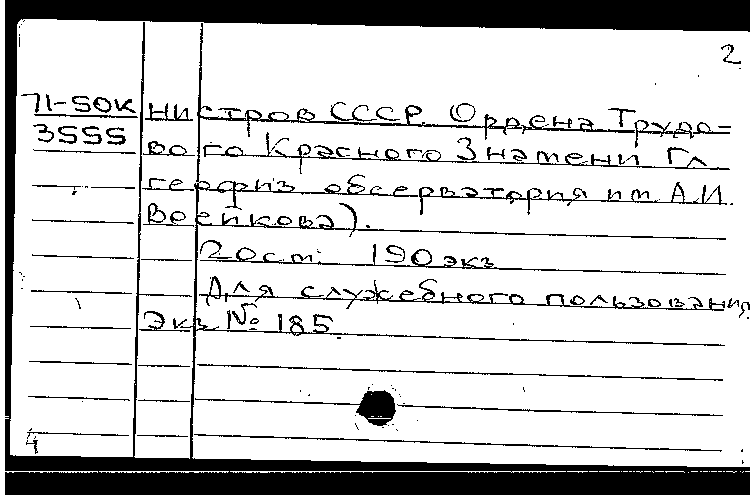 2
71-50К нистров СССР. Ордена Трудо-
3555 вого Красного Знамени Гл
геофиз обсерватория им. А.И.
Воейкова).
Рост: 190 экз
Для служебного пользования
Экз № 185.
4